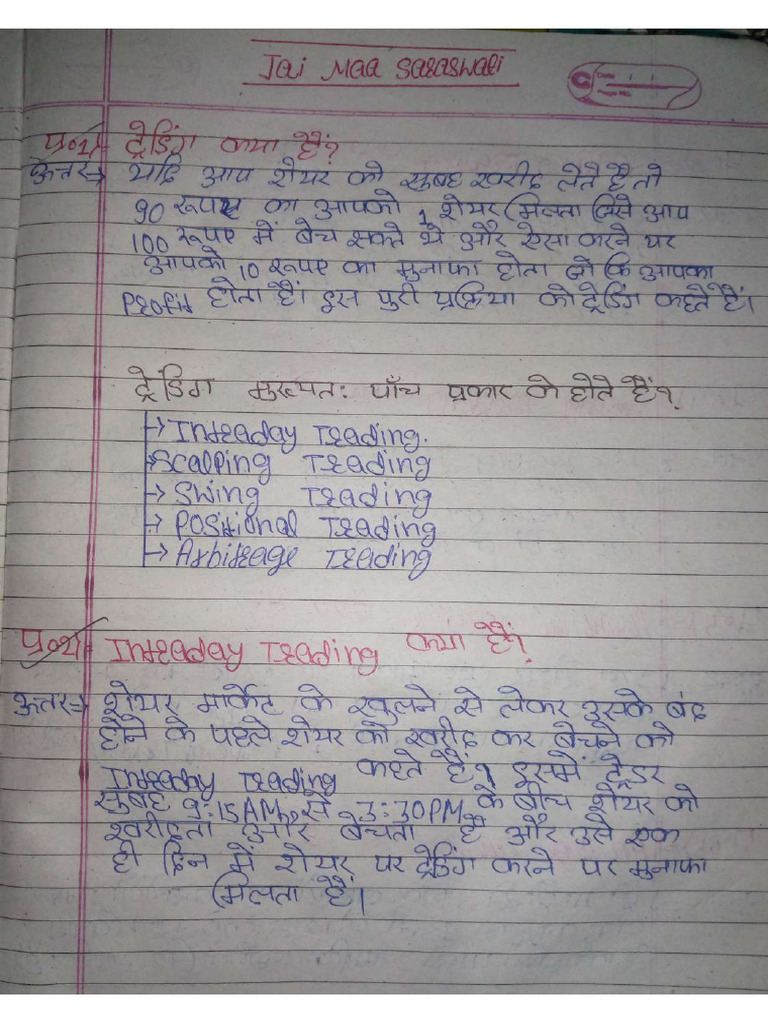 Jai Maa Saraswati
प्र०1) ट्रेडिंग क्या हैं?
उत्तर→ यदि आप शेयर को सुबह खरीद लेते है तो
90 रूपए का आपको 1 शेयर मिलता जिसे आप
100 रूपए में बेच सकते थे और ऐसा करने पर
आपको 10 रूपए का मुनाफा होता जो कि आपका
Profit होता हैं। इस पुरी प्रक्रिया को ट्रेडिंग कहते हैं।
ट्रेडिंग मुख्यत: पाँच प्रकार के होते हैं?
→ Intraday Trading.
→ Scalping Trading
→ Swing Trading
→ Positional Trading
→ Arbitrage Trading
प्र०2) Intraday Trading क्या हैं?
उत्तर→ शेयर मार्केट के खुलने से लेकर उसके बंद
होने के पहले शेयर को खरीद कर बेचने को
Intraday Trading कहते हैं। इसमें ट्रेडर
सुबह 9:15AM से 3:30PM के बीच शेयर को
खरीदता और बेचता है और उसे एक
ही दिन में शेयर पर ट्रेडिंग करने पर मुनाफा
मिलता हैं।